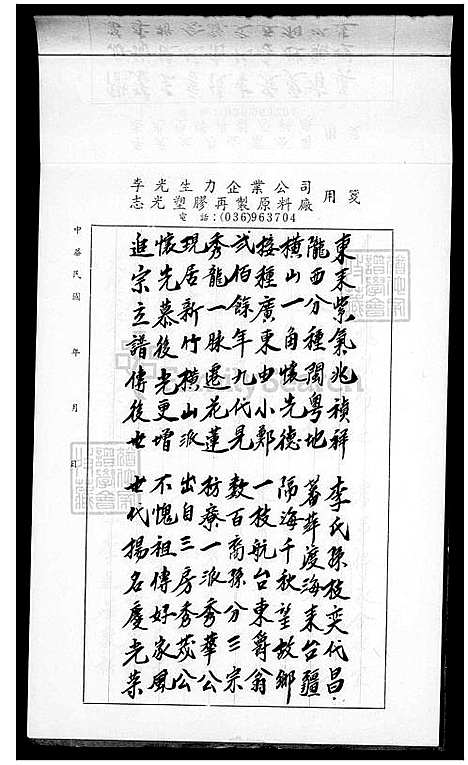 李光生力企業公司
志光塑膠再製原料廠 用箋
電話:(036)963704
東来紫氣兆禎祥 李氏孫枝奕代昌.
隴西分種閩粵地 蕃萍渡海来台疆
橫山一角懷先德 隔海千秋望故鄉
接種廣東由小鄭 一枝航台東爵翁
弍伯餘年九代是 數百裔孫分三宗
秀龍一脉遷花蓮 枋寮一派秀華公
現居新竹橫山派 出自三房秀茂公
懷先慕後光更增 不愧祖傳好家風
追宗立譜傳後世 世代揚名慶光榮
中華民國 年 月 日